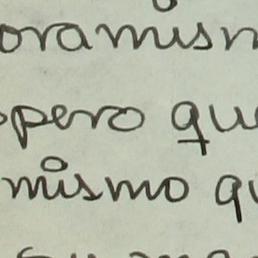 oramism
pero qu
mismo qu